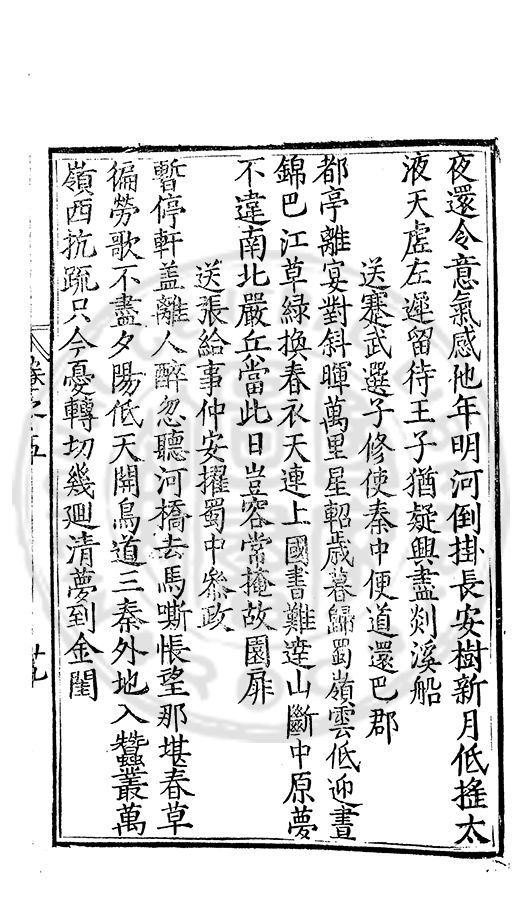 夜還令意氣感他年明河倒掛長安樹新月低搖太
液天虛左遲留待王子猶疑興盡剡溪船
送蹇武選子修使秦中便道還巴郡
都亭離宴對斜暉萬里星軺歲暮歸蜀嶺雲低迎晝
錦巴江草綠換春衣天連上國書難達山斷中原夢
不違南北嚴兵當此日豈容常掩故園扉
送張給事仲安擢蜀中參政
暫停軒盖離人醉忽聽河橋去馬嘶悵望那堪春草
徧勞歌不盡夕陽低天開鳥道三秦外地入蠶叢萬
嶺西抗疏只今憂轉切幾廻清夢到金閨
卷之五
十九